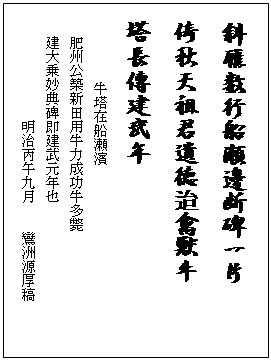 斜雁数行船頭邊断碑一片
倚秋天祖君遺徳治禽獣牛
塔長傳建武年
牛塔在船瀬濱
肥州公築新田用牛力成功牛多斃
建大乗妙典碑即建武元年也
明治丙午九月　鸞洲源厚稿